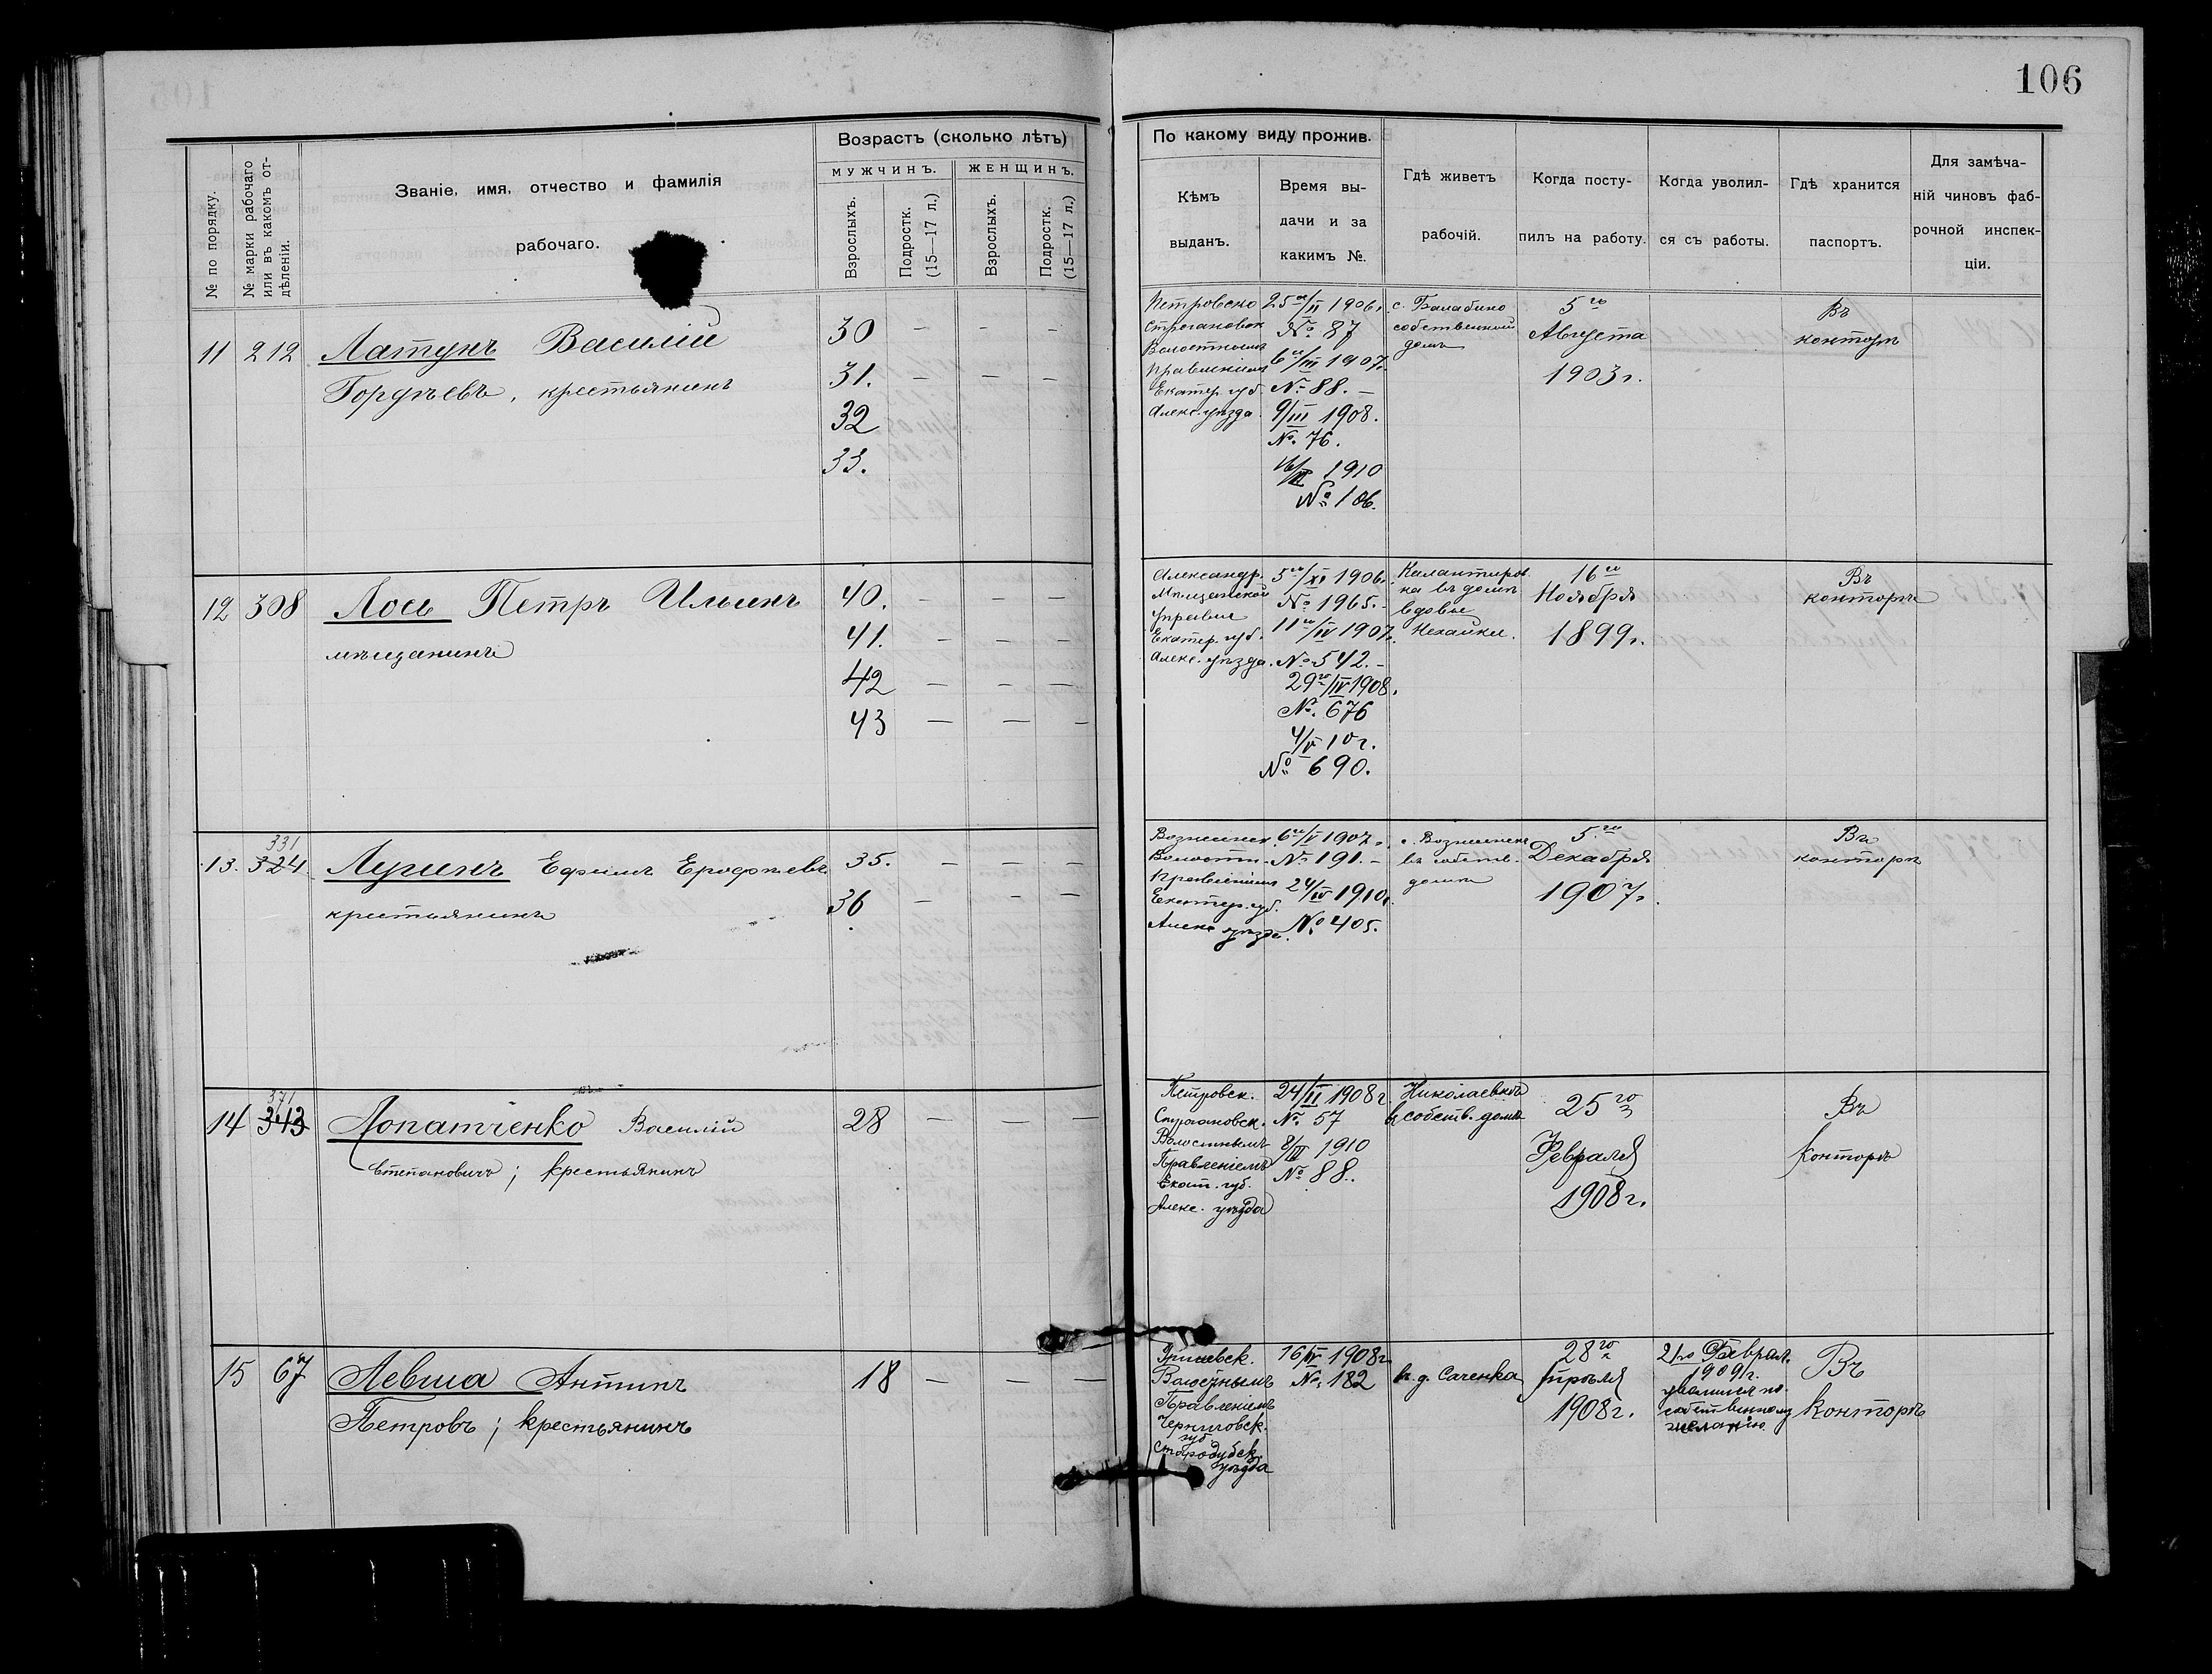 106
Возрастъ (сколько лѣтъ)
МУЖЧИНЪ. ЖЕНЩИНЪ.
№ по порядку.
№ марки рабочаго
или въ какомъ от-
дѣленіи.
Званіе, имя, отчество и фамилія
рабочаго.
Взрослыхъ.
Подростк.
(15—17 л.)
Взрослыхъ.
Подростк.
(15—17 л.)
По какому виду прожив.
Кѣмъ
выданъ.
Время вы-
дачи и за
какимъ №.
Гдѣ живетъ
рабочій.
Когда посту-
пилъ на работу.
Когда уволил-
ся съ работы.
Гдѣ хранится
паспортъ.
Для замѣча-
ній чиновъ фаб-
рочной инспек-
ціи.
11 212 Латунъ Василій
Гордѣевъ, крестьянинъ
30 — — —
31. — — —
32
33.
Петровско
Строгановск
Волостнымъ
Правленіемъ
Екатер. губ.
Алекс. уѣзда
25го/II 1906г.
№ 87
6го/III 1907г.
№ 88. —
9/III 1908.
№ 76.
1910
№ 106.
с. Балабино
собственный
домъ
5го
Августа
1903г.
Въ
конторѣ
12 308 Лось Петръ Ильинъ
мѣщанинъ
40. — — —
41. — — —
42 — — —
43 — — —
Александр.
Мѣщанской
Управы
Екатер. губ.
Алекс. уѣзда.
5го/XI 1906г.
№ 1965. —
11го/IV 1907г.
№ 542. —
29го/IV 1908.
№ 676
4/V 10г.
№ 690.
Калантыров
ка въ домѣ
вдовы
16го
Ноября
1899г.
Въ
конторѣ
331
13. 324 Лугинъ Ефимъ Ерофѣевъ
крестьянинъ
35. — — —
36 — — —
Вознесенск.
Волостн.
Правленіемъ
Екатер. губ.
Алекс уѣзда.
6го/V 1907г.
№ 191. —
24/IV 1910г.
№ 405.
с. Вознесенск
въ собств.
домѣ
5го
Декабря
1907г.
Въ
конторѣ
371
14 343 Лопатченко Василій
Степановичъ; крестьянинъ
28 — — —
Петровск.
Волостнымъ
Правленіемъ
Екат. губ.
Алекс. уѣзда
24/II 1908г.
№ 57
8/III 1910
№ 88.
Николаевкѣ
въ собств. домѣ
25го
Февраля
1908г.
Въ
Конторѣ
15 67 Левша Антипъ
Петровъ; крестьянинъ
18 — — —
Волостнымъ
Правленіемъ
Черниговск.
губ
Стародубск.
уѣзда
16/IV 1908г
№ 182
в. д. Саченка
28го
Апрѣля
1908г.
21го Феврал.
1909г.
уволился по
собственному
желанію
Въ
Конторѣ